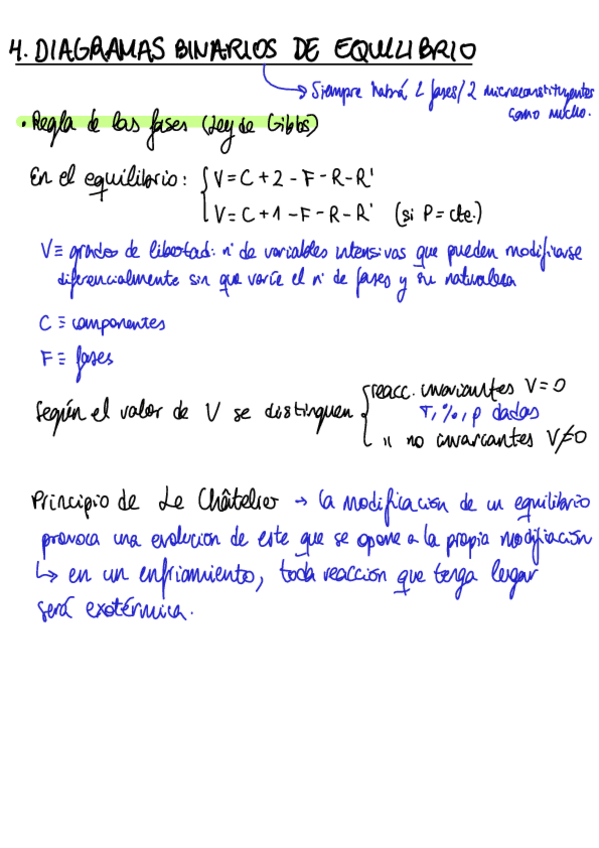 4. DIAGRAMAS BINARIOS DE EQUILIBRIO
↳ Siempre habrá 2 fases/2 microconstituyentes
como mucho.
• Regla de las fases (Ley de Gibbs)
En el equilibrio: { V = C + 2 - F - R - R'
V = C + 1 - F - R - R' (si P = cte.)
V ≡ grados de libertad: nº de variables intensivas que pueden modificarse
diferencialmente sin que varíe el nº de fases y su naturaleza
C ≡ componentes
F ≡ fases
Según el valor de V se distinguen { reacc. invariantes V = 0
T, %, p dadas
" no invariantes V ≠ 0
Principio de Le Châtelier → la modificación de un equilibrio
provoca una evolución de este que se opone a la propia modificación
↳ en un enfriamiento, toda reacción que tenga lugar
será exotérmica.